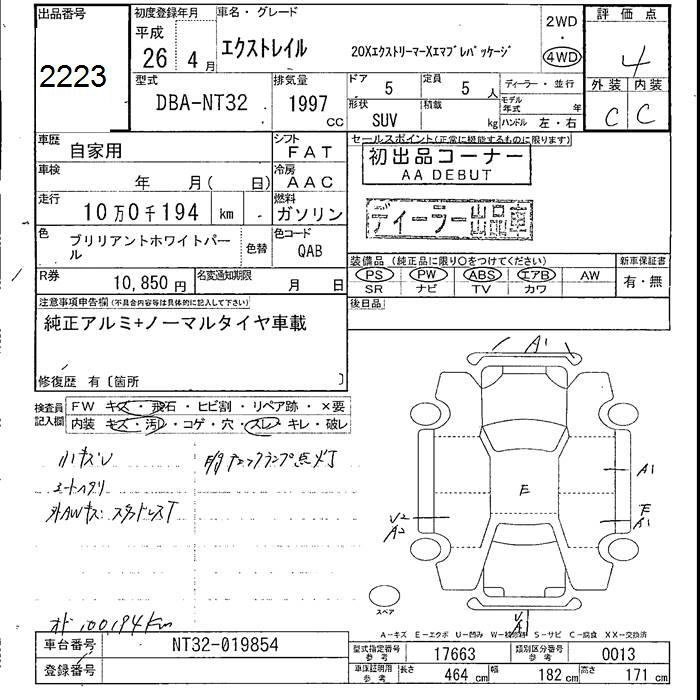 出品番号
2223
初度登録年月
平成
26年 4月
車名・グレード
エクストレイル
20XエクストリーマーXエマブレパッケージ
2WD
・
4WD
評価点
4
外装 内装
C C
型式
DBA-NT32
排気量
1997
CC
ドア
5
定員
5 人
ディーラー・並行
形状
SUV
積載
kg
モデル年式 年
ハンドル 左・右
車歴
自家用
シフト
FAT
セールスポイント(正常に機能するものに限ります)
初出品コーナー
AA DEBUT
車検
年 月( 日)
冷房
AAC
走行
10万0千194 km
燃料
ガソリン
ディーラー出品車
色
ブリリアントホワイトパール
色替
色コード
QAB
装備品(純正品に限り○をつけてください)
PS PW ABS エアB AW
SR ナビ TV カワ
新車保証書
有・無
R券
10,850円
名変通知期限
月 日
後日品
注意事項申告欄(不具合内容等は具体的に記入して下さい)
純正アルミ+ノーマルタイヤ車載
修復歴 有〔箇所 〕
検査員記入欄
FW キズ・飛石・ヒビ割・リペア跡・×要
内装 キズ・汚・コゲ・穴・スレ・キレ・破レ
小キズU
シートヘタリ
外AWキズ スタッドレスT
チェックランプ点灯
オド100,194Km
A1
E
A1
F
A1
V2
A2
スペア
V
A1
A-キズ E-エクボ U-凹み W-補修跡 S-サビ C-腐食 XX-交換済
車台番号
NT32-019854
登録番号
型式指定番号
参考
17663
類別区分番号
参考
0013
車体証明用
参考
長さ 464 cm
幅 182 cm
高さ 171 cm